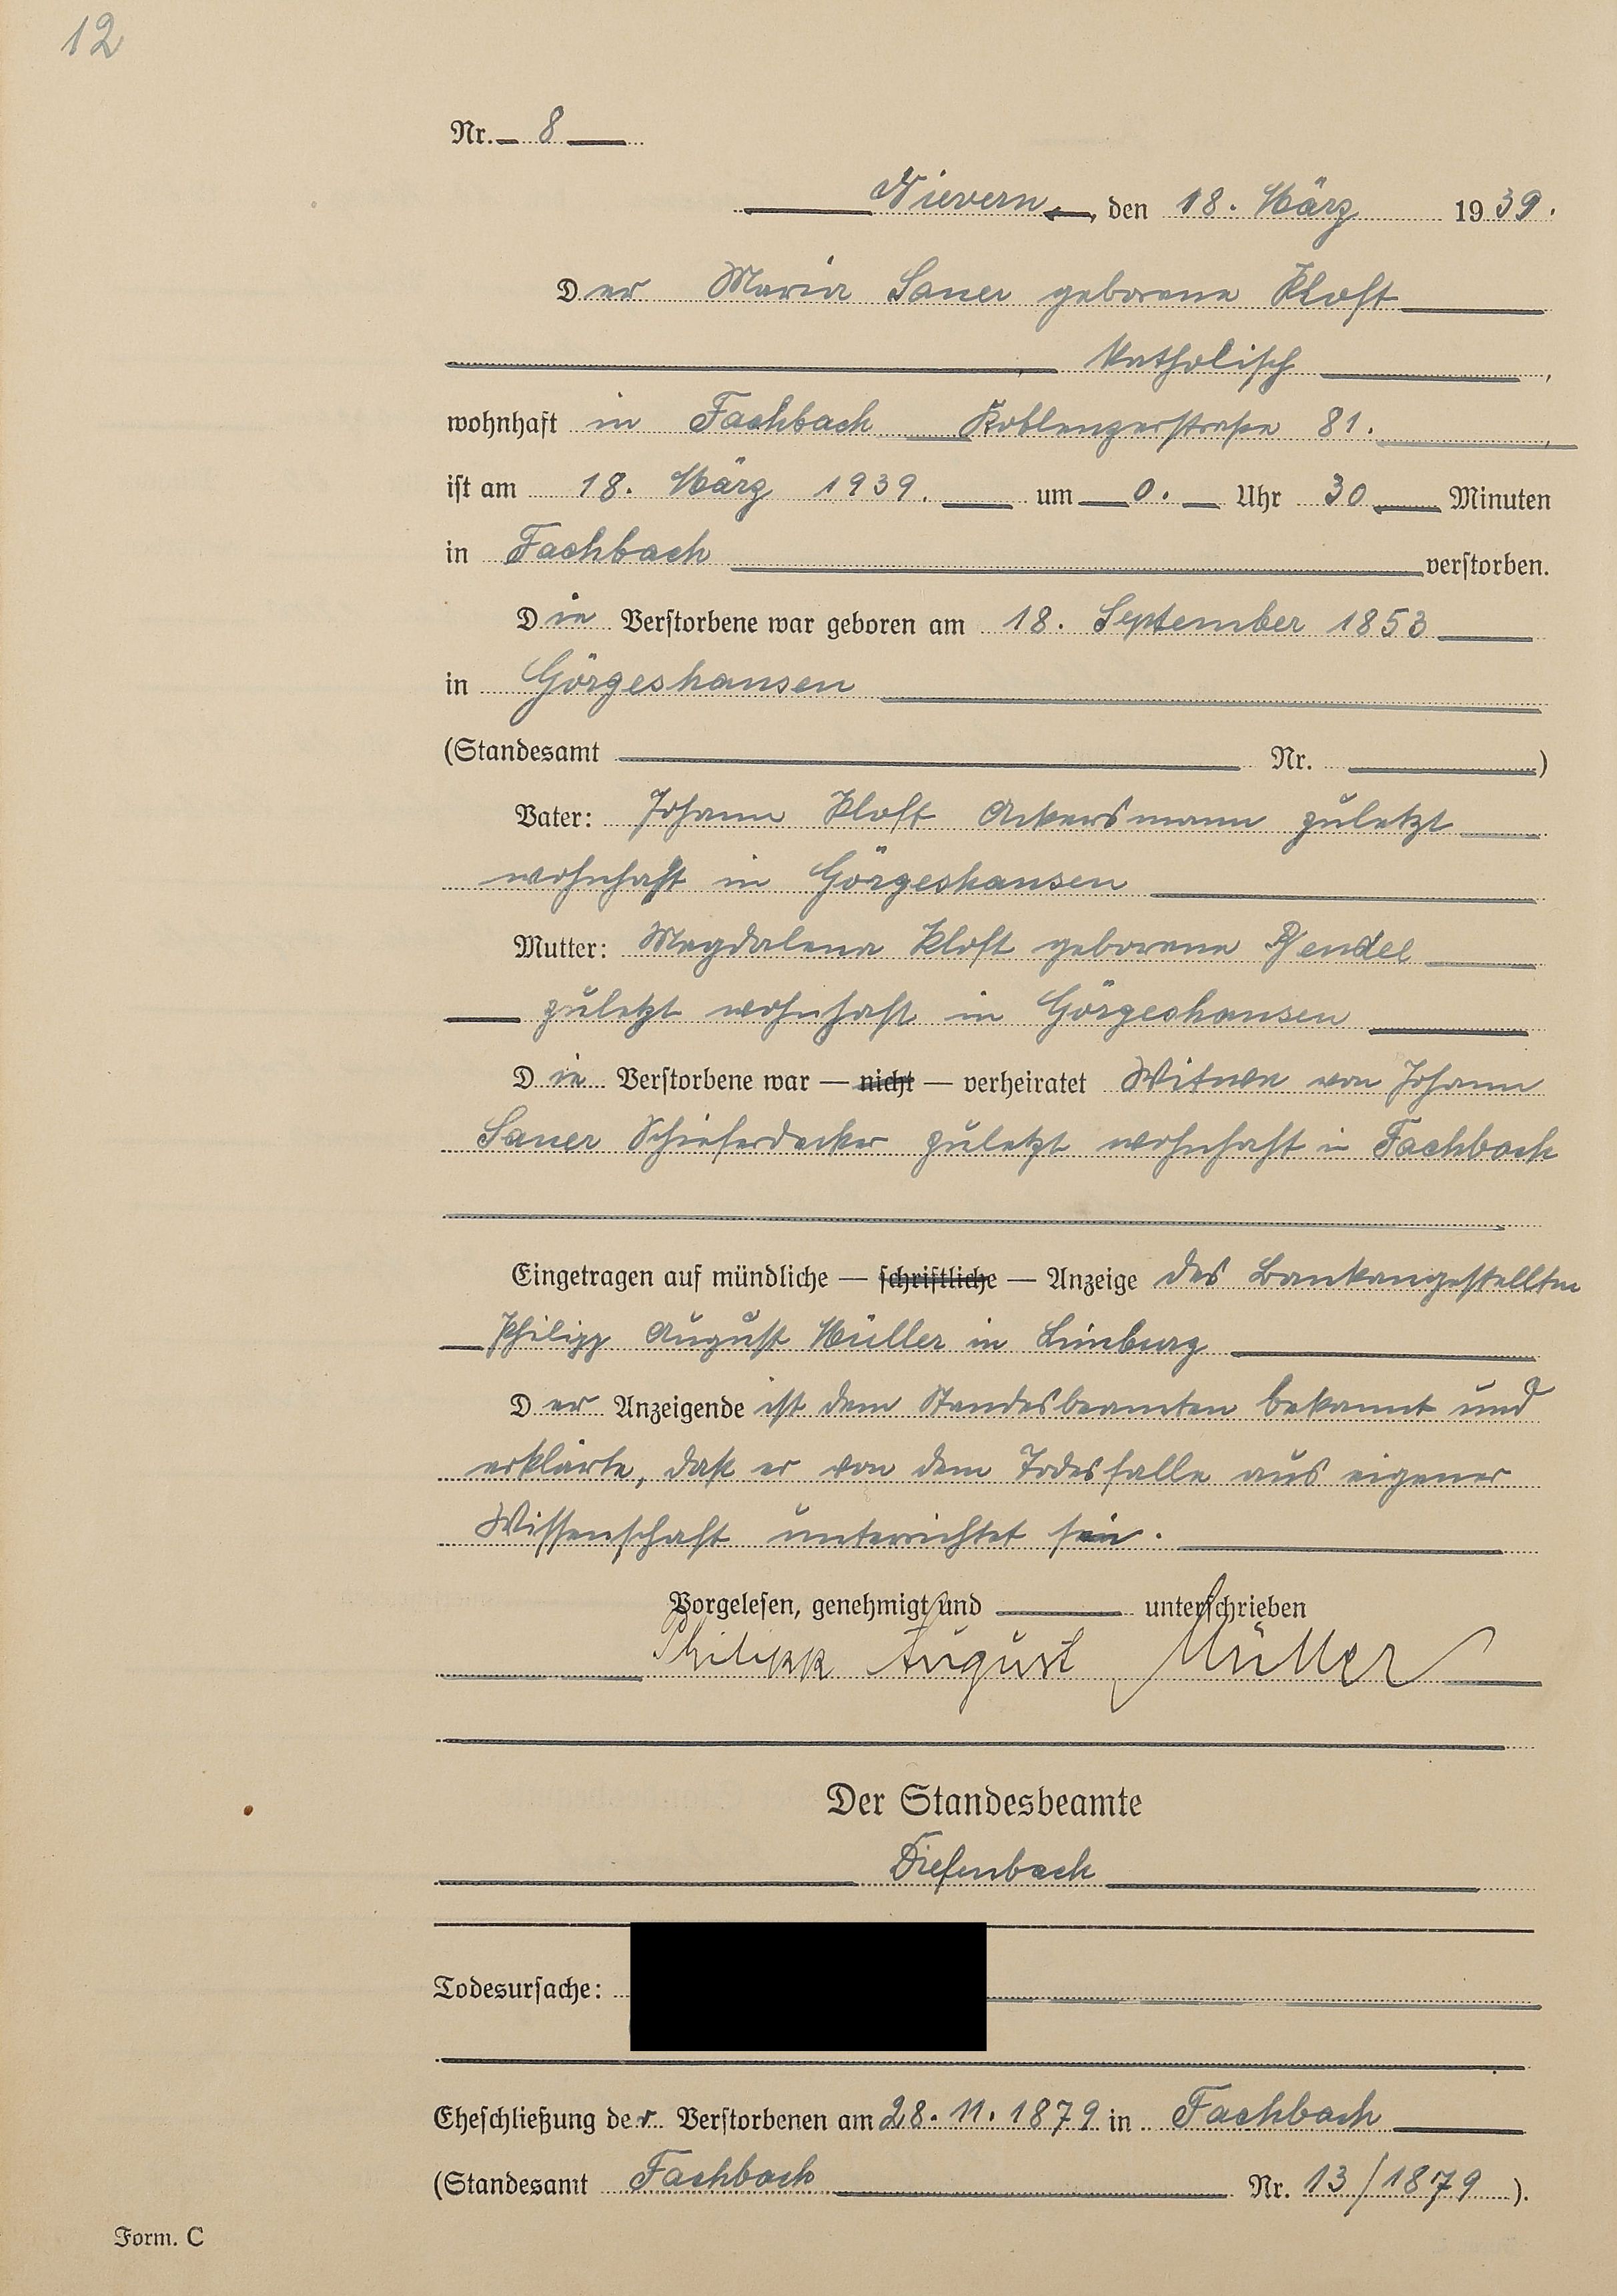 12
Nr. 8
Nievern, den 18. März 1939.
Der Maria Sauer geborene Kloft
katholisch,
wohnhaft in Fachbach Koblenzerstraße 81.
ist am 18. März 1939. um 0. Uhr 30 Minuten
in Fachbach verstorben.
Die Verstorbene war geboren am 18. September 1853
in Görgeshausen
(Standesamt Nr. )
Vater: Johann Kloft Ackersmann zuletzt
wohnhaft in Görgeshausen
Mutter: Magdalena Kloft geborene
zuletzt wohnhaft in Görgeshausen
Die Verstorbene war — nicht — verheiratet Witwe von Johann
Sauer Schieferdecker zuletzt wohnhaft in Fachbach
Eingetragen auf mündliche — schriftliche — Anzeige des Bankangestellten
Philipp August Müller in Limburg
Der Anzeigende ist dem Standesbeamten bekannt und
erklärte, daß er von dem Todesfalle aus eigener
Wissenschaft unterrichtet sei.
Vorgelesen, genehmigt und unterschrieben
Philipp August Müller
Der Standesbeamte
Diefenbach
Todesursache:
Eheschließung der Verstorbenen am 28. 11. 1879 in Fachbach
(Standesamt Fachbach Nr. 13/1879).
Form. C